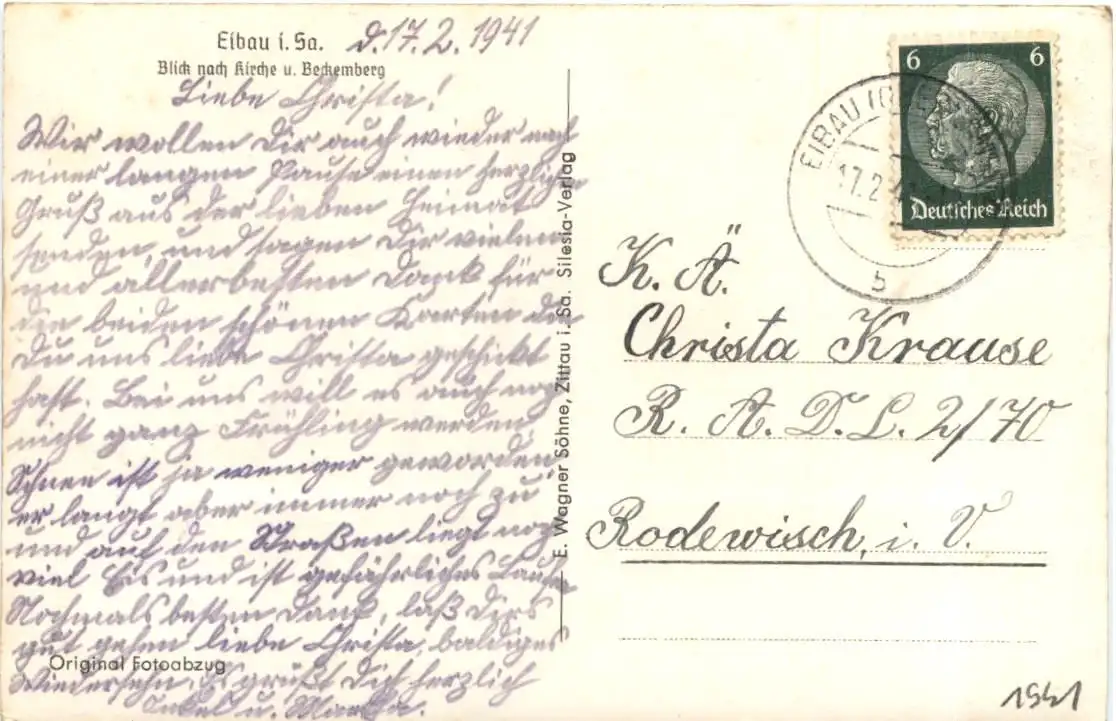 Eibau i. Sa. d. 17. 2. 1941
Blick nach Kirche u. Beckemberg
Liebe Christa!
Wir wollen Dir auch wieder nach
einer langen Pause einen herzlichen
Gruß aus der lieben Heimat
senden, und sagen Dir vielen
und allerbesten Dank für
die beiden schönen Karten die
Du uns liebe Christa geschickt
hast. Bei uns will es auch noch
nicht ganz Frühling werden
Schnee ist ja weniger geworden
er langt aber immer noch zu
und auf den Straßen liegt noch
viel Eis und ist gefährliches Laufen
Nochmals besten Dank, laß Dirs
gut gehen liebe Christa, baldiges
Wiedersehn. Es grüßt Dich herzlich
Onkel u. Martha.
Original Fotoabzug
E. Wagner Söhne, Zittau i. Sa. Silesia-Verlag
6 6
Deutsches Reich
EIBAU
17.2.
b
K. Ä.
Christa Krause
R. A. D. L. 2/70
Rodewisch, i. V.
1941